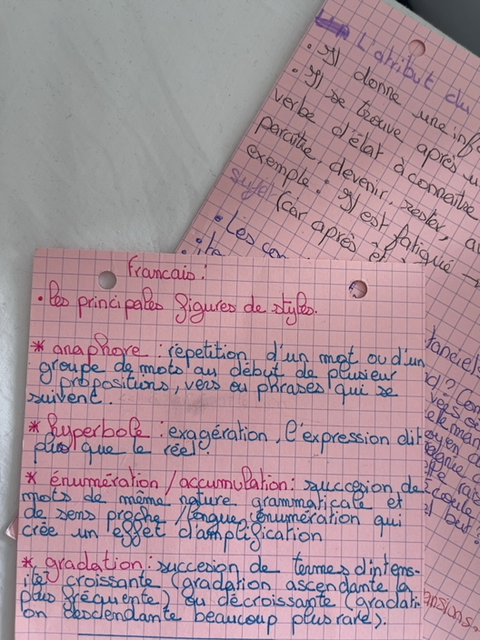 L'atribut du
• Il donne une inf
• Il se trouve après u
verbe d'état à connaître
paraître, devenir, rester, a
exemple : Il est fatigué →
sujet (car après et
• Les con
Francais :
• les principales figures de styles.
* anaphore : répetition d'un mot ou d'un
groupe de mots au début de plusieur
propositions, vers ou phrases qui se
suivent.
* hyperbole : exagération, l'expression dit
plus que le réel.
* énumération / accumulation : succesion de
mots de même nature grammaticale et
de sens proche / longue énumération qui
crée un effet d'amplification
* gradation : succesion de termes d'intens-
ité croissante (gradation ascendante la
plus frécuente) ou décroissante (gradati-
on desdendante beaucoup plus rare).